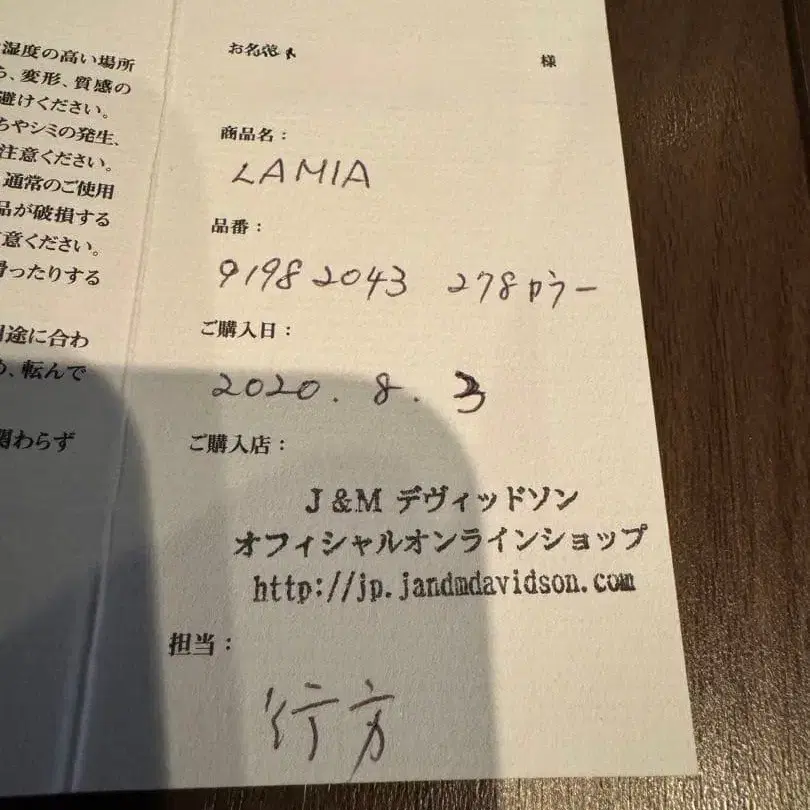 湿度の高い場所
、変形、質感の
避けください。
ちやシミの発生、
注意ください。
通常のご使用
品が破損する
意ください。
ったりする
途に合わ
、転んで
関わらず
お名前
様
商品名：
LAMIA
品番：
91982043 278カラー
ご購入日：
2020. 8. 3
ご購入店：
J&M デヴィッドソン
オフィシャルオンラインショップ
http://jp.jandmdavidson.com
担当：
行方